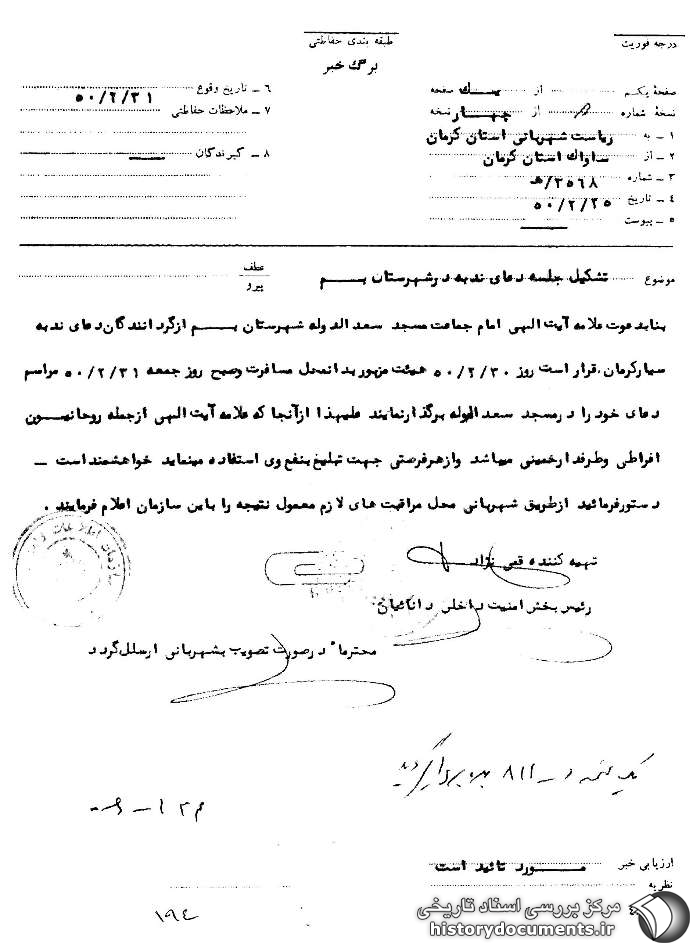 درجه فوریت
طبقه بندی حفاظتی
برگ خبر
صفحهٔ یکم از یک صفحه
نسخهٔ شماره از چهار نسخه
۱ – به ریاست شهربانی استان کرمان
۲ – از ساواک استان کرمان
۳ – شماره ۳۵۶۸/هـ
۴ – تاریخ ۵۰/۲/۲۵
۵ – پیوست
۶ – تاریخ وقوع ۵۰/۲/۳۱
۷ – ملاحظات حفاظتی
۸ – گیرندگان
موضوع تشکیل جلسه دعای ندبه در شهرستان بم
عطف
پیرو
بنابدعوت علامه آیت الهی امام جماعت مسجد سعد الدوله شهرستان بم ازگردانندگان دعای ندبه
سیارکرمان، قرار است روز ۵۰/۲/۳۰ هیئت مزبور بدانمحل مسافرت وصبح روز جمعه ۵۰/۲/۳۱ مراسم
دعای خود را درمسجد سعد الدوله برگذارنمایند علیهذا ازآنجا که علامه آیت الهی ازجمله روحانیون
افراطی وطرفدارخمینی میباشد وازهرفرصتی جهت تبلیغ بنفع وی استفاده مینماید خواهشمند است –
دستورفرمائید ازطریق شهربانی محل مراقبت های لازم معمول نتیجه را باین سازمان اعلام فرمایند .
تهیه کننده قمی نژاد
رئیس بخش امنیت داخلی دانائیان
محترما" درصورت تصویب بشهربانی ارسال گردد
ارزیابی خبر مورد تائید است
نظریه
۱۹٤
مرکز بررسی اسناد تاریخی
historydocuments.ir